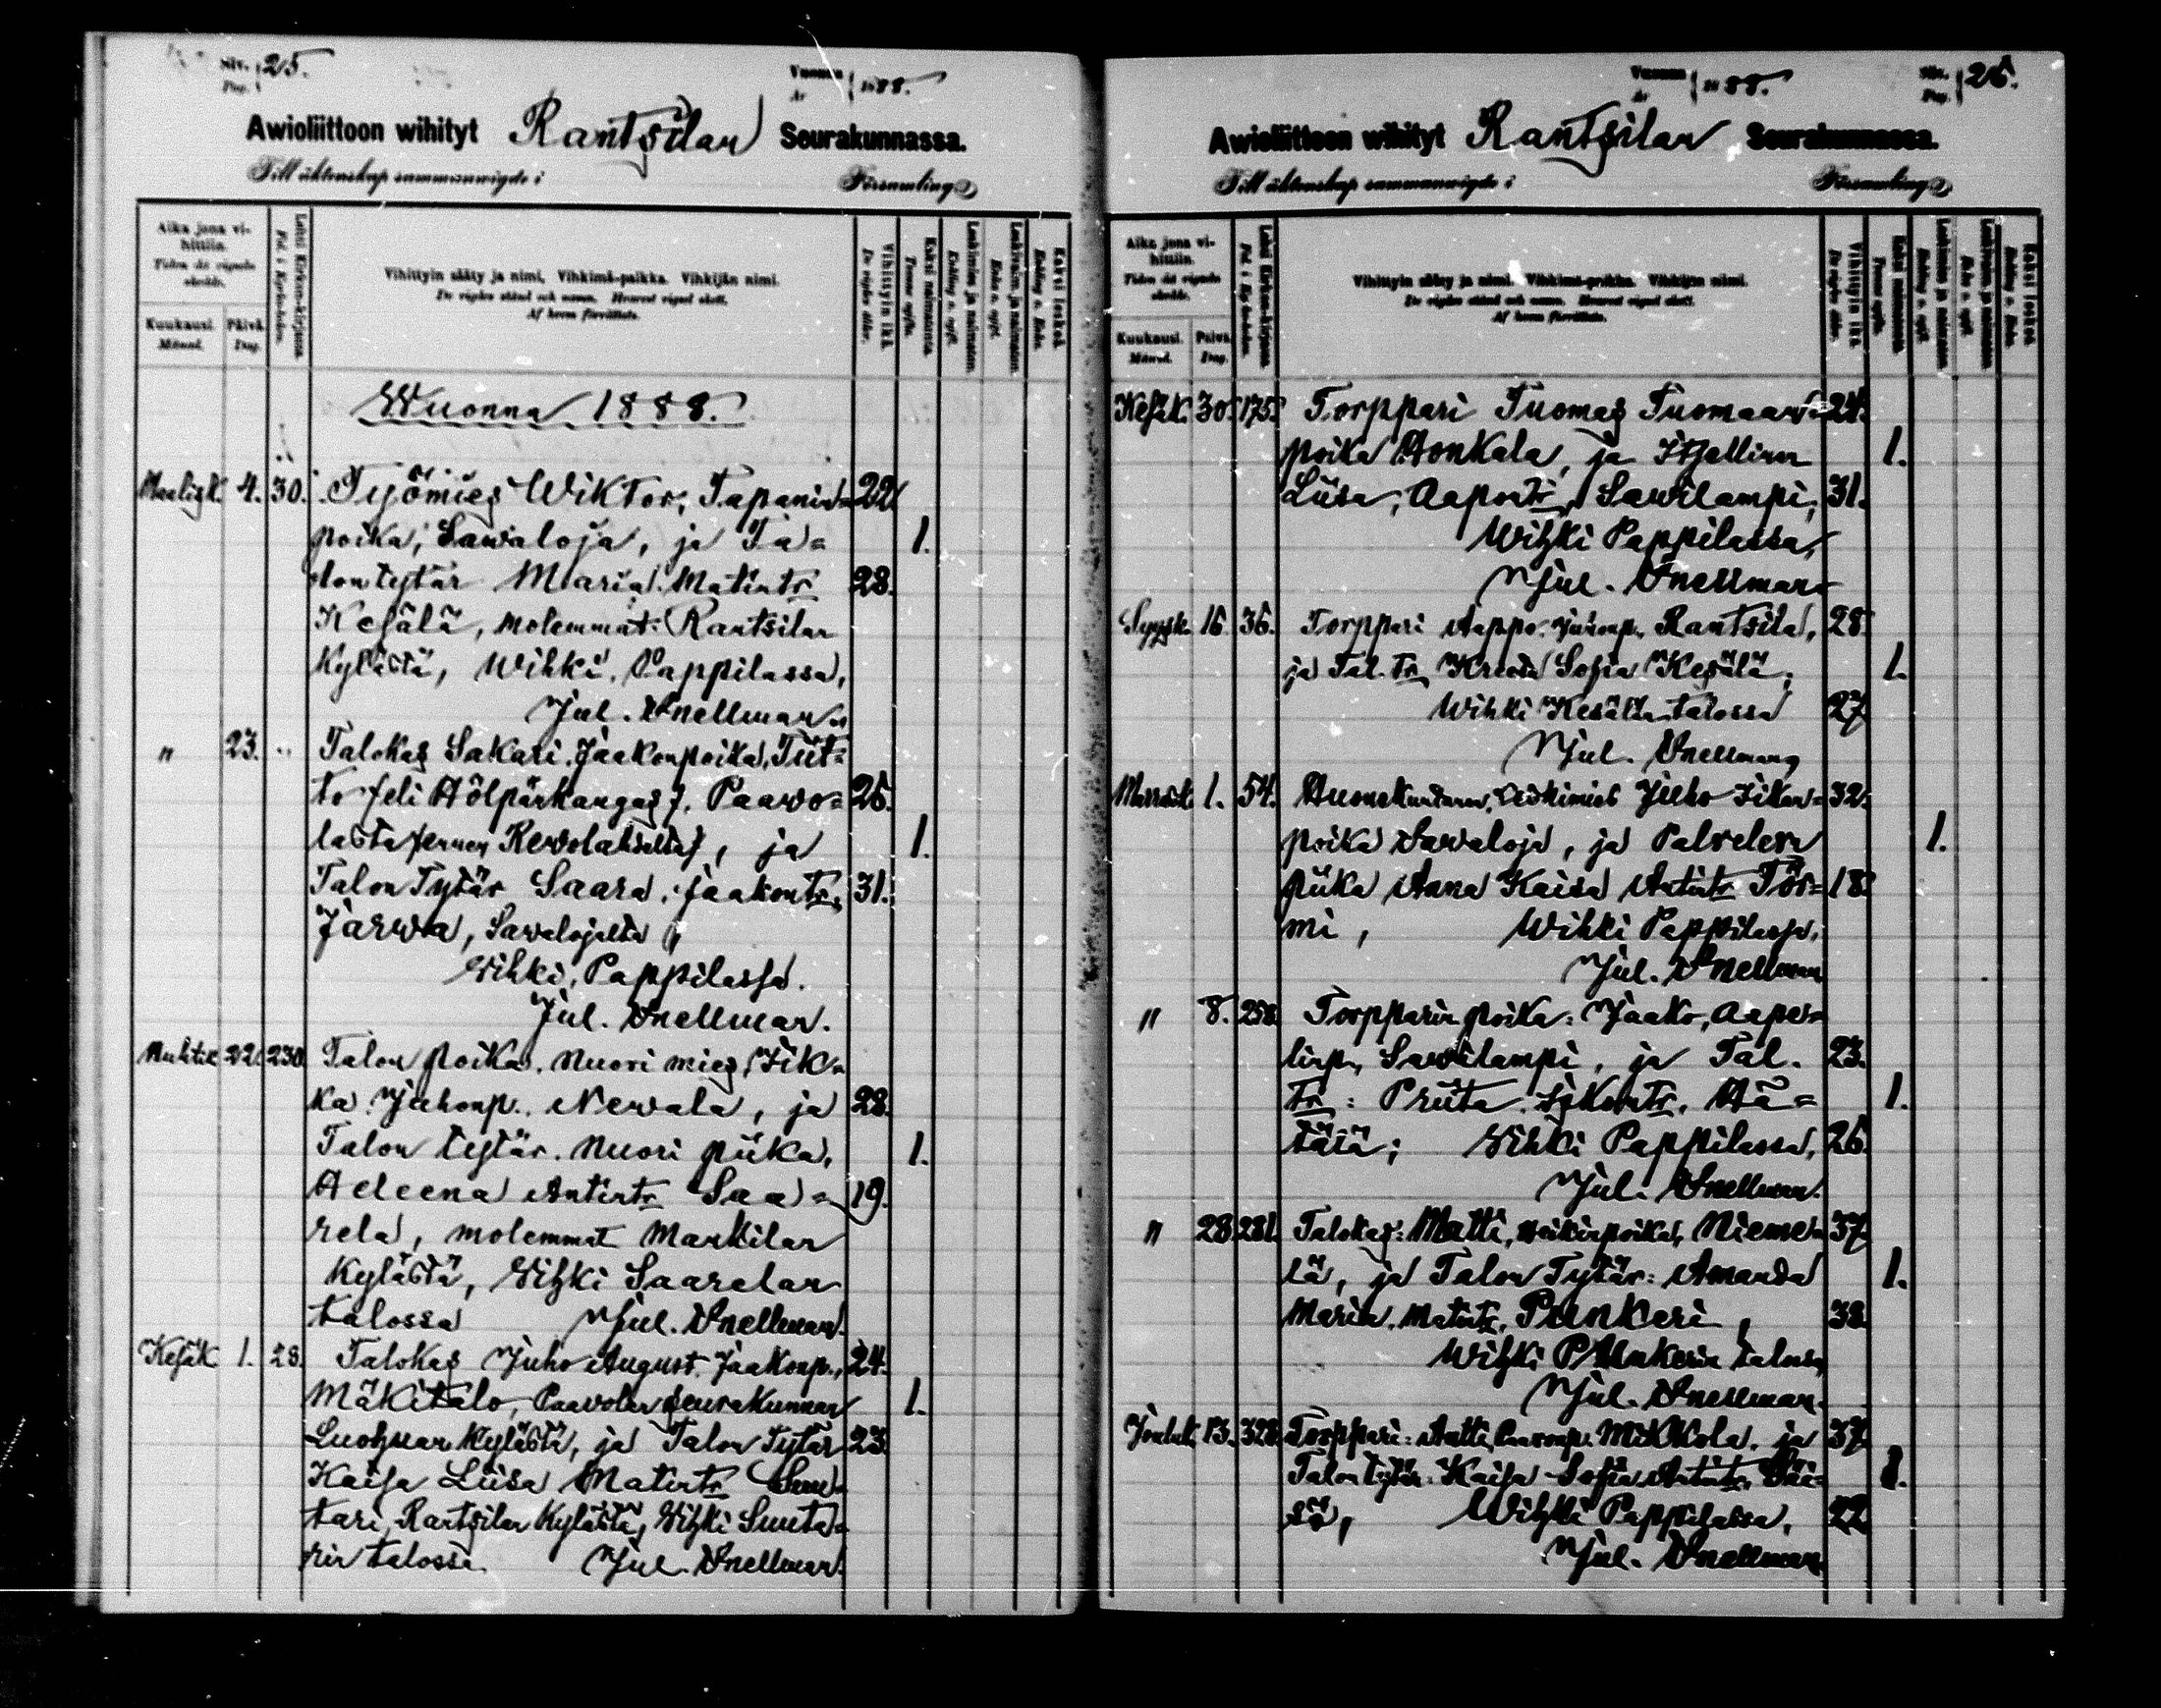 Siv. Pag. 25.
Vuonna År 1888.
Awioliittoon wihityt Rantsilan Seurakunnassa.
Till äktenskap sammanwigde i Församling
Aika jona vihittiin.
Tiden då vigseln skedde.
Kuukausi. Månad.
Päivä. Dag.
Lehti Kirkon-kirjassa
Fol. i Kyrkoboken.
Vihittyin sääty ja nimi. Vihkimä-paikka. Vihkijän nimi.
De vigdes stånd och namn. Hvarest vigsel skett.
Af hvem förrättats.
Vihittyin ikä.
De vigdes ålder.
Kaksi naimatonta
Tvenne ogifta.
Leskimies ja naimaton.
Enkling o. ogift.
Leskivaimo ja naimaton.
Enka o. ogift.
Kaksi leskeä.
Enkling o. Enka.
Wuonna 1888.
Maalisk. 4. 30. Työmies Wiktor, Tapanin- 22
poika, Sawaloja, ja Ta= 1.
lontytär Maria Matints 28.
Kesälä, molemmat Rantsilan
Kylästä, Wihki Pappilassa,
Jul. Snellman
" 23. Talokas Sakari Jaakonpoika, Tiit=
to Paawo= 26.
lasta Rewolahdelta, ja 1.
Talon Tytär Saara Jaakonts, 31.
Järwa, Sawalojalta,
Wihki Pappilassa.
Jul. Snellman.
Huhtik 22. 230 Talon poika. Nuori mies, Iik=
ka Juhonp. Newala, ja 28.
Talon tytär. Nuori piika, 1.
Heleena Antints Saa= 19.
rela, molemmat Mankilan
Kylästä, Wihki Saarelan
talossa Jul. Snellman.
Kesäk 1. 28. Talokas Juho August Jaakonp., 24.
Mäkitalo, Paavolan seurakunnan 1.
Luohuan kylästä, ja Talon Tytär 23
Kaisa Liisa Matints Sun=
tari, Rantsilan Kylästä, Wihki Sunta=
rin talossa. Jul. Snellman.
Vuonna År 1888.
Siv. Pag. 26.
Awioliittoon wihityt Rantsilan Seurakunnassa.
Till äktenskap sammanwigde i Församling
Aika jona vihittiin.
Tiden då vigseln skedde.
Kuukausi. Månad.
Päivä. Dag.
Lehti Kirkon-kirjassa
Fol. i Kyrkoboken.
Vihittyin sääty ja nimi. Vihkimä-paikka. Vihkijän nimi.
De vigdes stånd och namn. Hvarest vigsel skett.
Af hvem förrättats.
Vihittyin ikä
De vigdes ålder.
Kaksi naimatonta.
Tvenne ogifta.
Leskimies ja naimaton.
Enkling o. ogift.
Leskivaimo ja naimaton.
Enka o. ogift.
Kaksi leskeä.
Enkling o. Enka.
Kesäk. 30. 175. Torppari Tuomas Tuomaan= 24.
poika Honkala, ja Itsellinen 1.
Liisa, Aaponts, Sawilampi, 31.
Wihki Pappilassa,
Jul. Snellman
Syysk. 16. 36. Torppari Aappo Juhonp. Rantsila, 28.
ja Tal. Tr Kreeta Sofia Kesälä, 1.
Wihki Kesälän talossa 27
Jul. Snellman
Marrask. 1. 54. Leskimies Juho Iikan= 32.
poika Sawaloja, ja Palvelen 1.
piika Anna Kaisa Antints Tör= 18
mi, Wihki Pappilassa,
Jul. Snellman
" 8. 258. Torpparin poika: Jaako, Aape=
linp. Sawilampi, ja Tal. 23.
tr: Priita Iikonts. Hä= 1.
tälä; Wihki Pappilassa, 26.
Jul. Snellman.
" 28 281. Talokas: Matti, Heikinpoika, Nieme= 37
lä, ja Talon Tytär: Amanda 1.
Maria. Matints. Punkeri, 38.
Wihki Punkerin talossa,
Jul. Snellman.
Jouluk. 13. 328. Torppari: Antti Paavonp. Mikkola, ja 37
Talon tytär: Kaisa Sofia Antints. 1.
Wihki Pappilassa, 22
Jul. Snellman